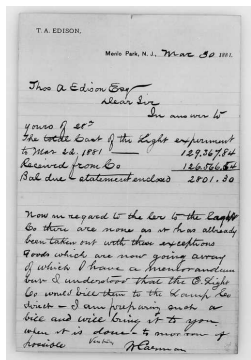 T. A. EDISON,
Menlo Park, N. J., Mar 30 1881.
Thos. A Edison Esq
Dear Sir
In answer to
yours of 28th
The total Cost of the Light experiment
to Mar 22, 1881 — 129,367.84
Received from Co 126,566.54
Bal due - statement enclosed 2801.30
Now in regard to the to the Light
Co there are none as it has already
been taken out with these exceptions
Goods which are now going away
of which I have a memorandum
but I understood that the E. Light
Co would bill them to the Lamp Co
direct - I am preparing such a
bill and will bring it to you
when it is done - to-morrow if
possible
W Carman